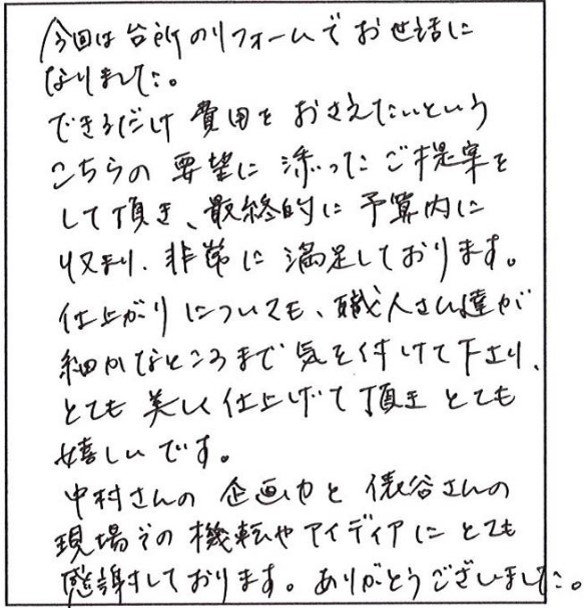 今回は台所のリフォームでお世話に
なりました。
できるだけ費用をおさえたいという
こちらの要望に添ったご提案を
して頂き、最終的に予算内に
収まり、非常に満足しております。
仕上がりについても、職人さん達が
細かなところまで気を付けて下さり、
とても美しく仕上げて頂きとても
嬉しいです。
中村さんの企画力と俵谷さんの
現場での機転やアイディアにとても
感謝しております。ありがとうございました。